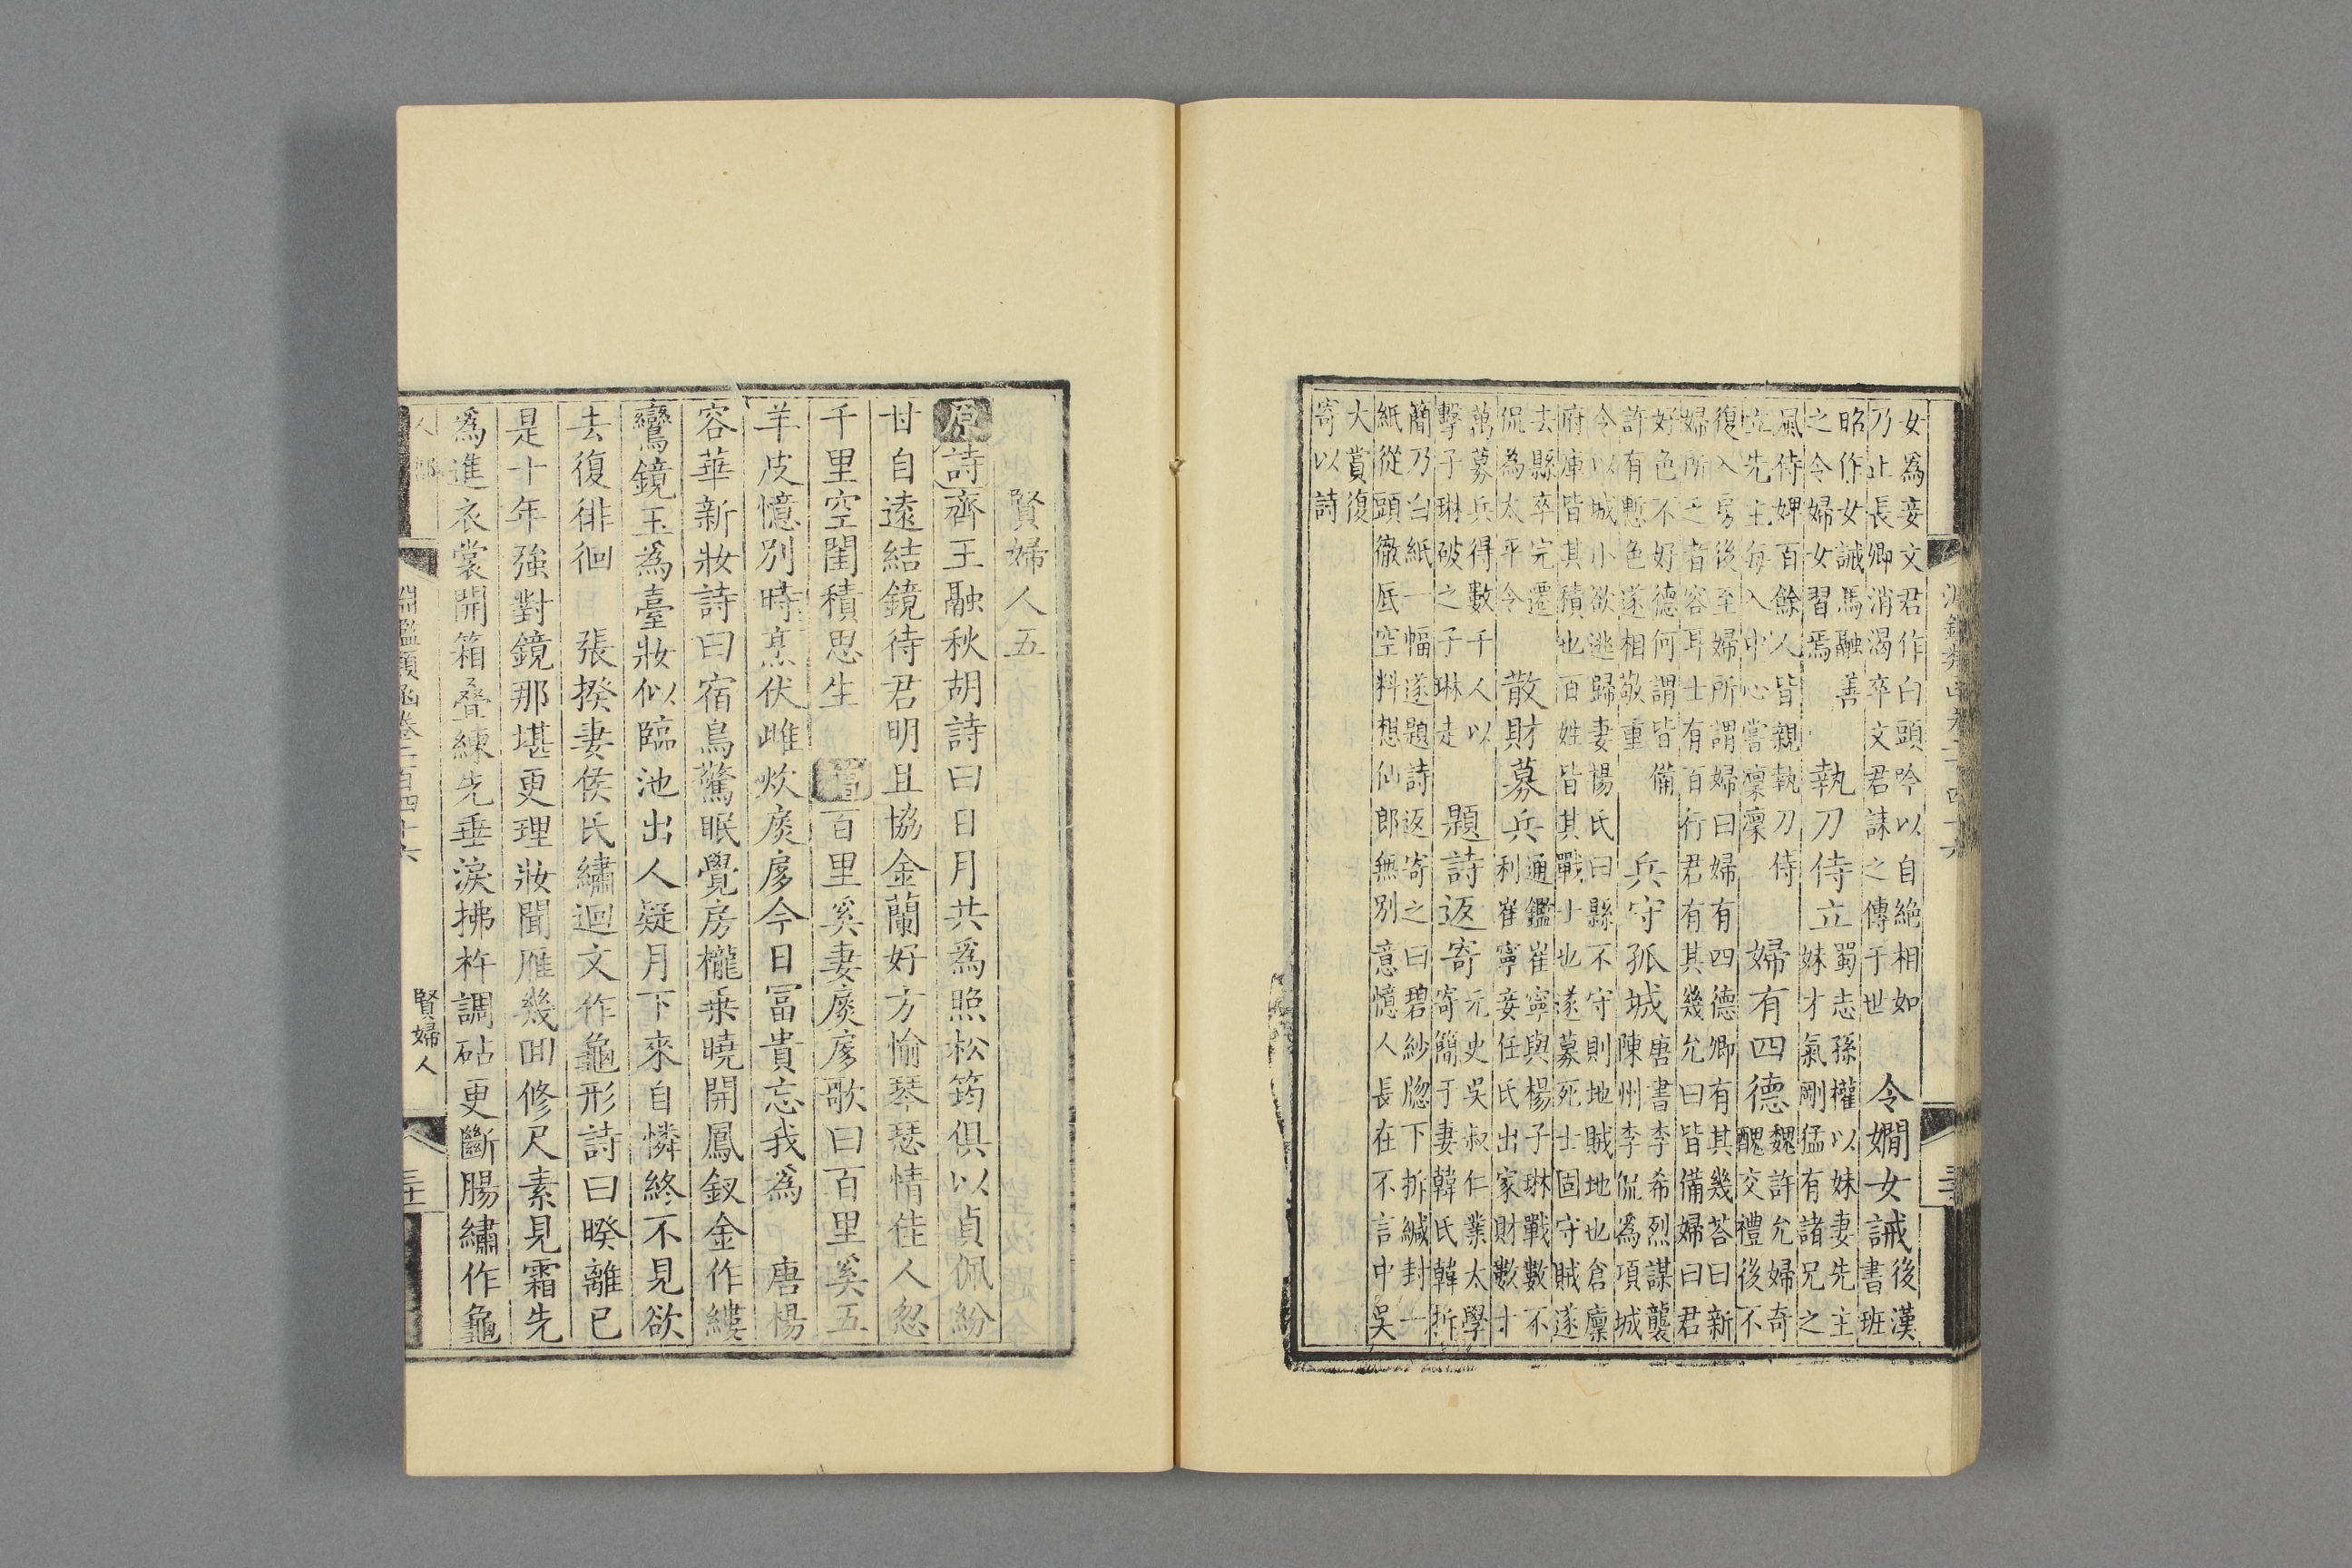 淵鑑類函卷二百四十六
女為妾文君作白頭吟以自絕相如
乃止長卿消渴卒文君誄之傳于世
令嫺女誡
後漢
書班
昭作女誡馬融善
之令婦女習焉
執刀侍立
蜀志孫權以妹妻先主
妹才氣剛猛有諸兄之
風侍婢百餘人皆親執刀侍
立先主每入中心嘗凜凜
婦有四德
魏許允婦奇
醜交禮後不
復入房後至婦所謂婦曰婦有四德卿有其幾荅曰新
婦所乏者容耳士有百行君有其幾允曰皆備婦曰君
好色不好德何謂皆備
許有慙色遂相敬重
兵守孤城
唐書李希烈謀襲
陳州李侃為項城
令以城小欲逃歸妻楊氏曰縣不守則地賊地也倉廩
府庫皆其積也百姓皆其戰士也遂募死士固守賊遂
去縣卒完遷
侃為太平令
散財募兵
通鑑崔寧與楊子琳戰數不
利崔寧妾任氏出家財數十
萬募兵得數千人以
擊子琳破之子琳是
題詩返寄
元史吳叔仁業太學
寄簡于妻韓氏韓拆
簡乃白紙一幅遂題詩返寄之曰碧紗牕下拆緘封一
紙從頭徹底空料想仙郎無別意憶人長在不言中吳
大賞復
寄以詩
賢婦人五
原詩齊王融秋胡詩曰日月共為照松筠俱以貞佩紛
甘自遠結鏡待君明且協金蘭好方愉琴瑟情佳人忽
千里空閨積思生 增百里奚妻扊扅歌曰百里奚五
羊皮憶別時烹伏雌炊扊扅今日冨貴忘我為 唐楊
容華新妝詩曰宿鳥驚眠覺房櫳乗曉開鳳釵金作縷
鸞鏡玉為臺妝似臨池出人疑月下來自憐終不見欲
去復徘徊 張揆妻侯氏繡迴文作龜形詩曰暌離已
是十年強對鏡那堪更理妝聞雁幾回修尺素見霜先
為進衣裳開箱疊練先垂淚拂杵調砧更斷腸繡作龜
人部 淵鑑類函卷二百四十六 賢婦人 三十一